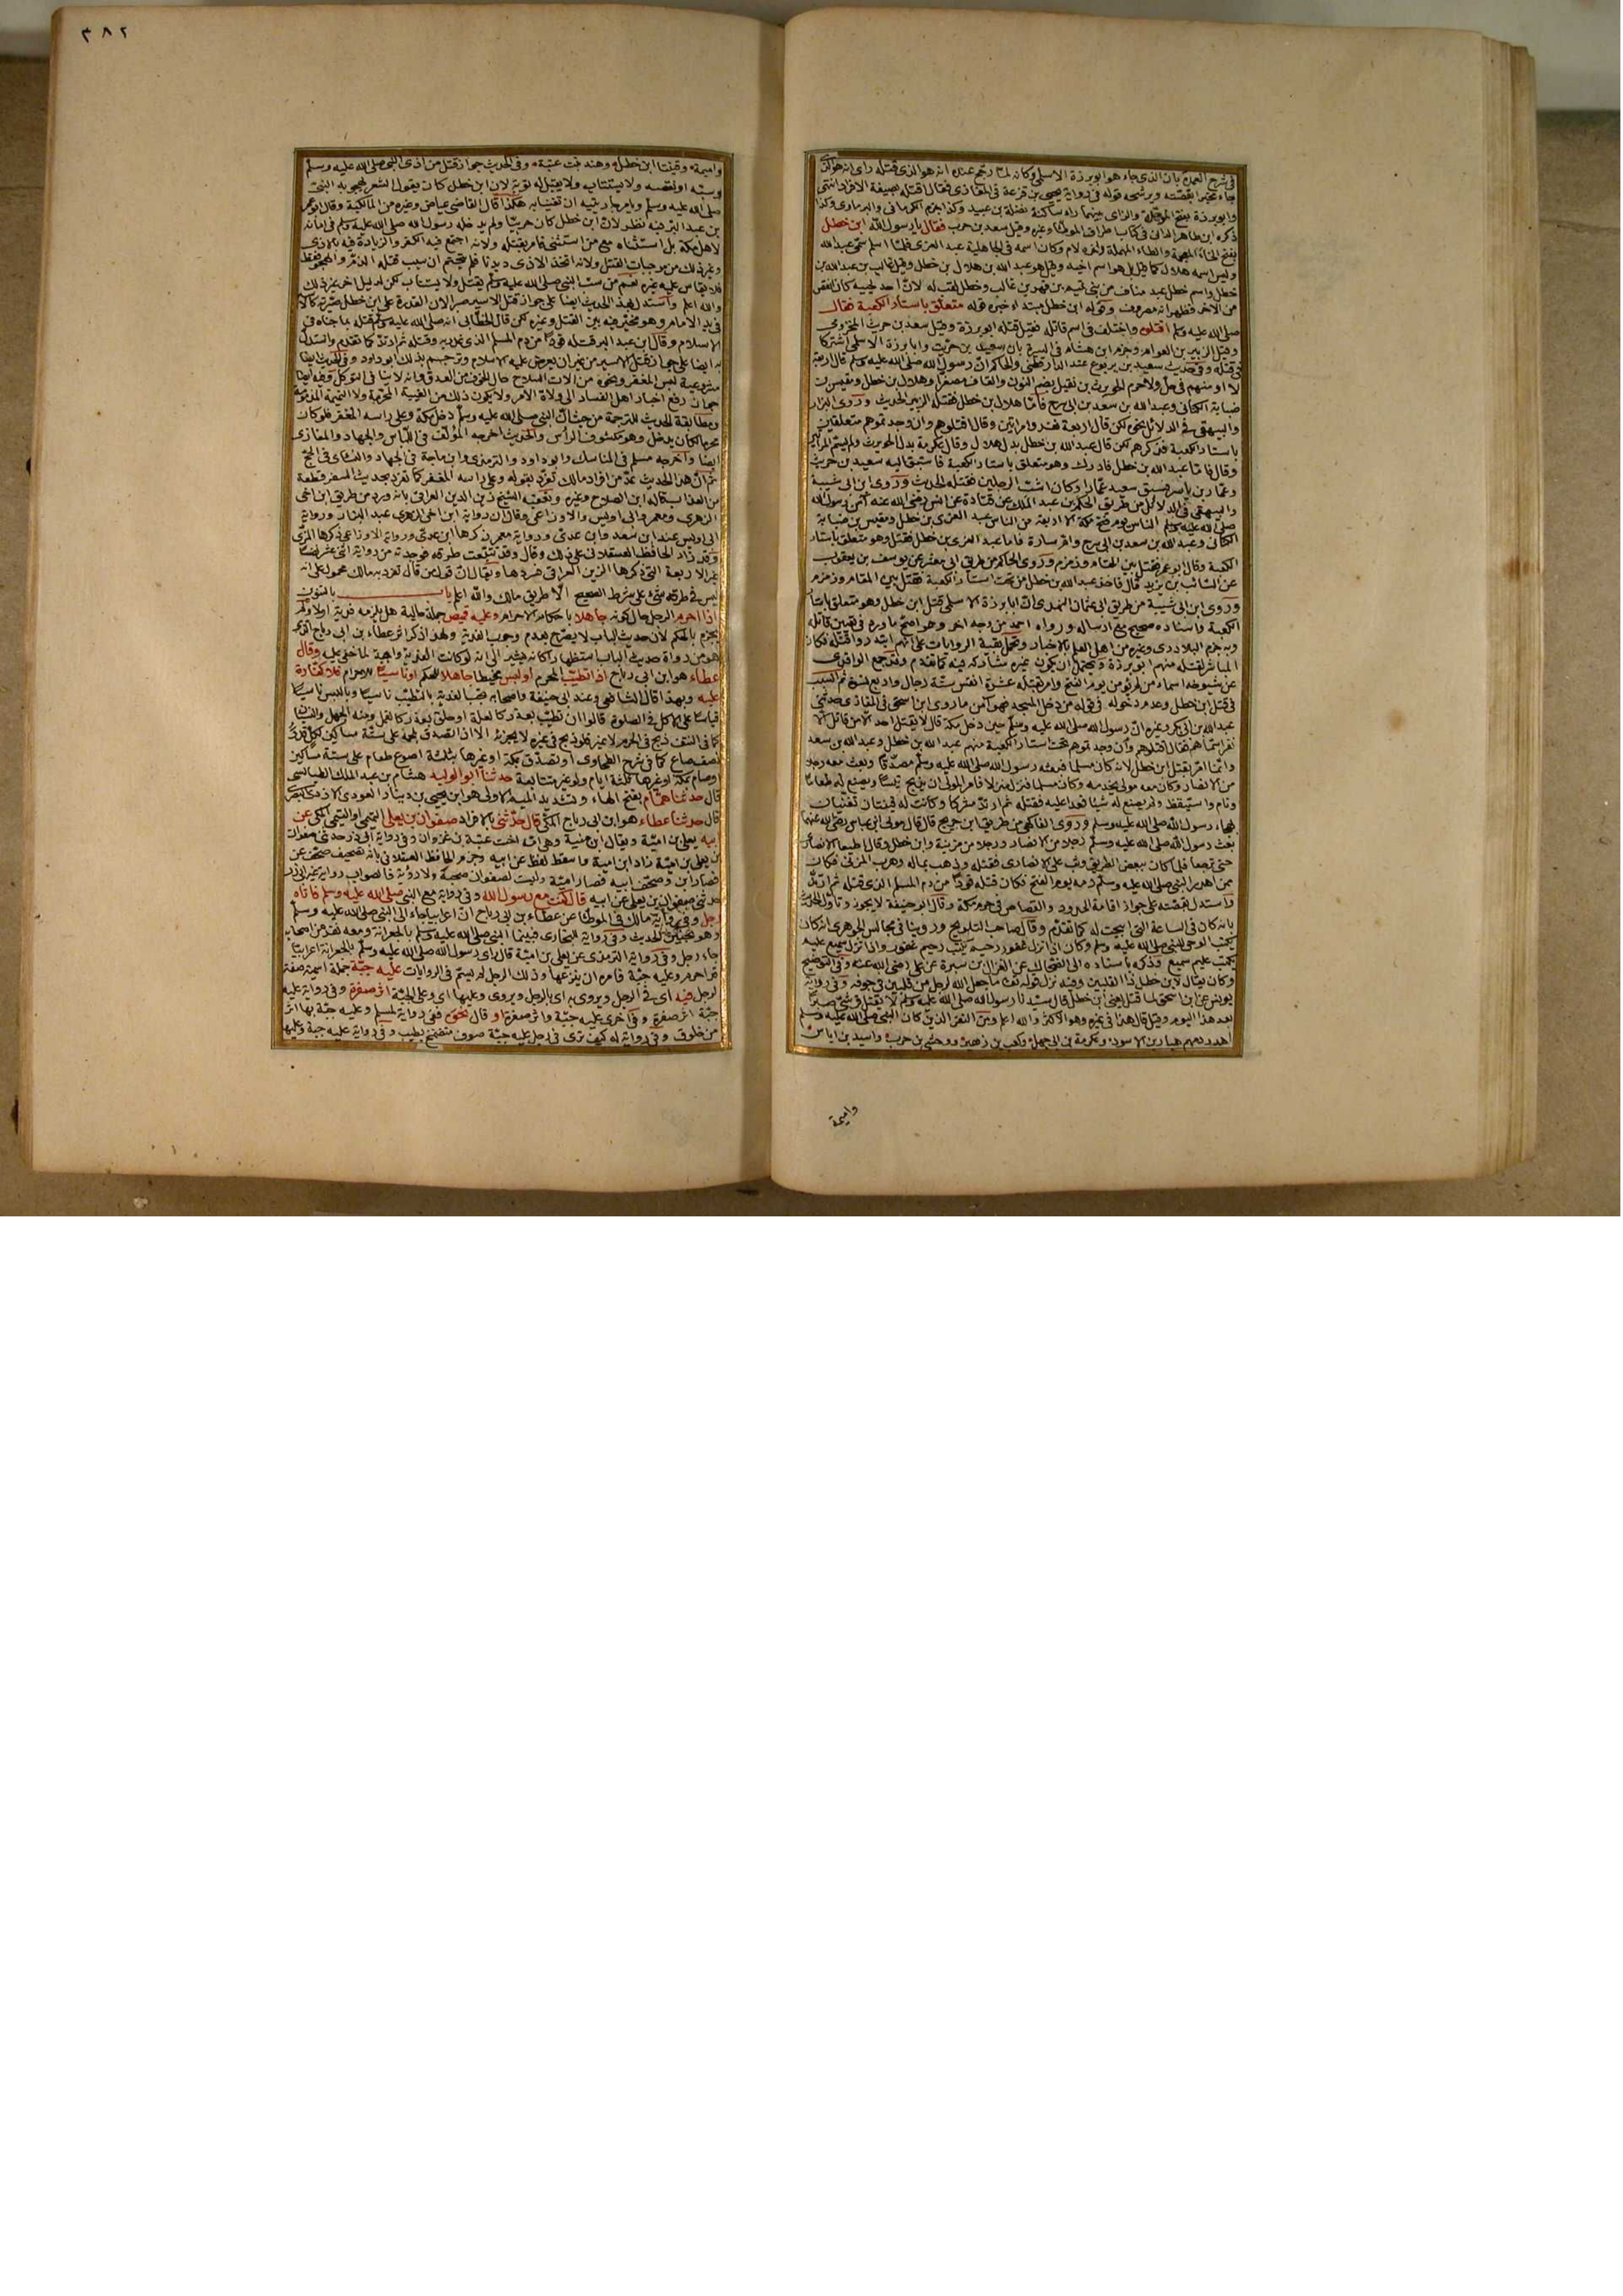 ٣٨٢
في شرح العمدة بان الذي جاء هو ابو برزة الاسلمي وكانه لما رجح عنده انه هو الذي قتله راى انه هو الذي
جاء مخبرا بقصته ويرشحه قوله في رواية يحيى بن قزعة في المغازي فقال اقتله بصيغة الافراد انتهى
وابو برزة بفتح الموحدة والزاي بينهما راء ساكنة نضلة بن عبيد وكذا جزم الكرماني والبرماوي وكذا
ذكره ابن طاهر الداني في كتاب اطراف الموطأ وغيره وقيل سعد بن حريث فقال يا رسول الله ابن خطل
بفتح الخاء المعجمة والطاء المهملة وآخره لام وكان اسمه في الجاهلية عبد العزى فلما اسلم سمى عبد الله
وليس اسمه هلال كما قيل بل هو اسم اخيه وقيل هو عبد الله بن هلال بن خطل وقيل غالب بن عبد الله بن
خطل واسم خطل عبد مناف من بني تيم بن فهر بن غالب وخطل لقب له لان احد لحييه كان انقص
من الاخر فظهر انه مصروف وقوله ابن خطل مبتدأ خبره قوله متعلق باستار الكعبة فقال
صلى الله عليه وسلم اقتلوه واختلف في اسم قاتله فقيل قتله ابو برزة وقيل سعد بن حريث المخزومي
وقيل الزبير بن العوام وجزم ابن هشام في السيرة بان سعيد بن حريث وابا برزة الاسلمي اشتركا
في قتله وفي حديث سعيد بن يربوع عند الدارقطني والحاكم ان رسول الله صلى الله عليه وسلم قال اربعة
لا اومنهم في حل ولا حرم الحويرث بن نقيل بضم النون والقاف مصغرا وهلال بن خطل ومقيس بن
ضبابة الكناني وعبد الله بن سعد بن ابي سرح فاما هلال بن خطل فقتله الزبير الحديث وروى البزار
والبيهقي في الدلائل نحوه لكن قال اربعة نفر وامراتين وقال اقتلوهم وان وجدتموهم متعلقين
باستار الكعبة فذكرهم لكن قال عبد الله بن خطل بدل هلال وقال عكرمة بدل الحويرث ولم يسم المراتين
وقال فاما عبد الله بن خطل فادرك وهو متعلق باستار الكعبة فاستبق اليه سعيد بن حريث
وعمار بن ياسر فسبق سعيد عمارا وكان اشب الرجلين فقتله الحديث وروى ابن ابي شيبة
والبيهقي في الدلائل من طريق الحكم بن عبد الملك عن قتادة عن انس رضي الله عنه امن رسول الله
صلى الله عليه وسلم الناس يوم فتح مكة الا اربعة من الناس عبد العزى بن خطل ومقيس بن ضبابة
الكناني وعبد الله بن سعد بن ابي سرح وام سارة فاما عبد العزى بن خطل فقتل وهو متعلق باستار
الكعبة وقال ابو عمر فقتل بين المقام وزمزم وروى الحاكم من طريق ابي معشر عن يوسف بن يعقوب
عن السائب بن يزيد قال فاخذ عبد الله بن خطل من تحت استار الكعبة فقتل بين المقام وزمزم
وروى ابن ابي شيبة من طريق ابي عثمان النهدي ان ابا برزة الاسلمي قتل ابن خطل وهو متعلق باستار
الكعبة واسناده صحيح مع ارساله ورواه احمد من وجه اخر وهو اصح ما ورد في تعيين قاتله
وبه جزم البلاذري وغيره من اهل العلم بالاخبار وتحمل بقية الروايات على انهم ابتدروا قتله فكان
المباشر لقتله منهم ابو برزة ويحتمل ان يكون غيره شاركه فيه كما تقدم وقد جمع الواقدي
عن شيوخه اسماء من لم يؤمن يوم الفتح وامر بقتله عشرة انفس ستة رجال واربع نسوة ثم السبب
في قتل ابن خطل وعدم دخوله في قوله من دخل المسجد فهو آمن ما روى ابن اسحق في المغازي حدثني
عبد الله بن ابي بكر وغيره ان رسول الله صلى الله عليه وسلم حين دخل مكة قال لا يقتل احد الا من قاتل الا
نفرا سماهم فقال اقتلوهم وان وجدتموهم تحت استار الكعبة منهم عبد الله بن خطل وعبد الله بن سعد
وانما امر بقتل ابن خطل لانه كان مسلما فبعثه رسول الله صلى الله عليه وسلم مصدقا وبعث معه رجلا
من الانصار وكان معه مولى يخدمه وكان مسلما فنزل منزلا فامر المولى ان يذبح تيسا ويصنع له طعاما
ونام واستيقظ ولم يصنع له شيئا فعدا عليه فقتله ثم ارتد مشركا وكانت له قينتان تغنيان
بهجاء رسول الله صلى الله عليه وسلم وروى الفاكهي من طريق ابن جريج قال قال مولى ابن عباس رضي الله عنهما
بعث رسول الله صلى الله عليه وسلم رجلا من الانصار ورجلا من مزينة وابن خطل وقال اطيعا الانصاري
حتى ترجعا فلما كان ببعض الطريق وثب على الانصاري فقتله وذهب بماله وهرب المزني فكان
ممن اهدر النبي صلى الله عليه وسلم دمه يوم الفتح فكان قتله قودا من دم المسلم الذي قتله ثم ارتد
واستدل بقصته على جواز اقامة الحدود والقصاص في حرم مكة وقال ابو حنيفة لا يجوز وتأول الحديث
بانه كان في الساعة التي ابيحت له كما تقدم وقال صاحب التلويح وروينا في مجالس الجوهري انه كان
يكتب الوحي للنبي صلى الله عليه وسلم وكان اذا نزل غفور رحيم يكتب رحيم غفور واذا نزل سميع عليم
يكتب عليم سميع وذكره باسناده الى الضحاك عن النزال بن سبرة عن علي رضي الله عنه وفي التوضيح
وكان يقال لابن خطل ذا القلبين وفيه نزل قوله تعالى ما جعل الله لرجل من قلبين في جوفه وفي رواية
يونس عن ابن اسحق لما قتل يعني ابن خطل قال سيدنا رسول الله صلى الله عليه وسلم لا يقتل قرشي صبرا
بعد هذا اليوم وقيل قال هذا في غيره وهو الاكثر والله اعلم ومن النفر الذين كان النبي صلى الله عليه وسلم
اهدر دمهم هبار بن الاسود وعكرمة بن ابي جهل وكعب بن زهير ووحشي بن حرب واسيد بن اياس
واميمة
واميمة وقينتا ابن خطل وهند بنت عتبة وفي الحديث جواز قتل من اذى النبي صلى الله عليه وسلم
وسبه او نقصه ولا يستتاب ولا يقبل له توبة لان ابن خطل كان يقول الشعر يهجو به النبي
صلى الله عليه وسلم ويامر جاريتيه ان تغنيا به هكذا قال القاضي عياض وغيره من المالكية وقال ابو عمر
بن عبد البر فيه نظر لان ابن خطل كان حربيا ولم يدخله رسول الله صلى الله عليه وسلم في امانه
لاهل مكة بل استثناه مع من استثنى فامر بقتله ولانه اجتمع فيه الكفر والزيادة فيه بالاذى
وغير ذلك من موجبات القتل ولانه اتخذ الاذى ديدنا فلم يتحتم ان سبب قتله الذم والهجو فقط
فلا يقاس عليه غيره نعم من سب النبي صلى الله عليه وسلم يقتل ولا يستتاب لكن لدليل اخر غير ذلك
والله اعلم واستدل بهذا الحديث ايضا على جواز قتل الاسير صبرا لان القدرة على ابن خطل صيرته كالاسير
في يد الامام وهو مخير فيه بين القتل وغيره لكن قال الخطابي انه صلى الله عليه وسلم قتله بما جناه في
الاسلام وقال ابن عبد البر قتله قودا من دم المسلم الذي غدر به وقتله ثم ارتد كما تقدم واستدل
به ايضا على جواز قتل الاسير من غير ان يعرض عليه الاسلام وترجم بذلك ابو داود وفي الحديث ايضا
مشروعية لبس المغفر ونحوه من الات السلاح حال الخوف من العدو وانه لا ينافي التوكل وفيه ايضا
جواز رفع اخبار اهل الفساد الى ولاة الامر ولا يكون ذلك من الغيبة المحرمة ولا النميمة المذمومة
ومطابقة الحديث للترجمة من حيث ان النبي صلى الله عليه وسلم دخل مكة وعلى راسه المغفر فلو كان
محرما لكان يدخل وهو مكشوف الراس والحديث اخرجه المؤلف في اللباس والجهاد والمغازي
ايضا واخرجه مسلم في المناسك وابو داود والترمذي وابن ماجة في الجهاد والنسائي في الحج
ثم ان هذا الحديث عد من افراد مالك تفرد بقوله وعلى راسه المغفر كما تفرد بحديث السفر قطعة
من العذاب كما قاله ابن الصلاح وغيره وتعقبه الشيخ زين الدين العراقي بانه ورد من طريق ابن اخي
الزهري ومعمر وابي اويس والاوزاعي وقال ان رواية ابن اخي الزهري عند البزار ورواية
ابي اويس عند ابن سعد وابن عدي ورواية معمر ذكرها ابن عدي ورواية الاوزاعي ذكرها المزي
وقد زاد الحافظ العسقلاني على ذلك وقال وقد تتبعت طرقه فوجدته من رواية اثني عشر نفسا
غير الاربعة التي ذكرها الزين العراقي فسردها ويقال ان قول من قال تفرد به مالك محمول على انه
ليس في طرقه شيء على شرط الصحيح الا طريق مالك والله اعلم باب بالتنوين
اذا احرم الرجل حال كونه جاهلا باحكام الاحرام وعليه قميص جملة حالية هل يلزمه فدية اولا ولم
يجزم بالحكم لان حديث الباب لا يصرح بعدم وجوب الفدية ولهذا ذكر اثر عطاء بن ابي رباح الذي
هو من رواة حديث الباب استظهارا كانه يشير الى انه لو كانت الفدية واجبة لما خفي عليه وقال
عطاء هو ابن ابي رباح اذا تطيب المحرم او لبس مخيطا جاهلا للحكم او ناسيا للاحرام فلا كفارة
عليه وبهذا قال الشافعي وعند ابي حنيفة واصحابه تجب الفدية بالتطيب ناسيا وباللبس ناسيا
قياسا على الاكل في الصلوة قالوا ان تطيب بعذر كالعلة او حلق بعذر كالقمل ومنه الجهل والنسيان
كما في النتف ذبح في الحرم لا غير فلو ذبح في غيره لا يجزئه الا ان تصدق بلحمه على ستة مساكين لكل قدر
نصف صاع كما في شرح الطحاوي او تصدق بمكة او غيرها بثلثة اصوع طعام على ستة مساكين
او صام بمكة او غيرها ثلثة ايام ولو غير متتابعة حدثنا ابو الوليد هشام بن عبد الملك الطيالسي
قال حدثنا همام بفتح الهاء وتشديد الميم الاولى هو ابن يحيى بن دينار العوذي الازدي البصري
قال حدثنا عطاء هو ابن ابي رباح المكي قال حدثني بالافراد صفوان بن يعلى التيمي او التميمي المكي عن
ابيه يعلى بن امية ويقال ابن منية وهي امه اخت عتبة بن غزوان وفي رواية ابي ذر حدثني صفوان
بن يعلى بن امية زاد ابن امية واسقط لفظ عن ابيه وجزم الحافظ العسقلاني بانه تصحيف صحف عن
فصار ابن وصحف ابيه فصار امية وليست لصفوان صحبة ولا رؤية فالصواب رواية غير ابي ذر
حدثني صفوان بن يعلى عن ابيه قال كنت مع رسول الله وفي رواية مع النبي صلى الله عليه وسلم فاتاه
رجل وفي رواية مالك في الموطا عن عطاء بن ابي رباح ان اعرابيا جاء الى النبي صلى الله عليه وسلم
وهو بحنين الحديث وفي رواية البخاري فبينما النبي صلى الله عليه وسلم بالجعرانة ومعه نفر من اصحابه
جاءه رجل وفي رواية الترمذي عن يعلى بن امية قال راى رسول الله صلى الله عليه وسلم بالجعرانة اعرابيا
قد احرم وعليه جبة فامره ان ينزعها وذلك الرجل لم يسم في الروايات عليه جبة جملة اسمية صفة
لرجل فيه اي في الرجل ويروى به اي بالرجل ويروى وعليها اي وعلى الجبة اثر صفرة وفي رواية عليه
جبة اثر صفرة وفي اخرى عليه جبة واثر صفرة او قال نحوه ففي رواية لمسلم وعليه جبة بها اثر
من خلوق وفي رواية له كيف ترى في رجل عليه جبة صوف متضمخ بطيب وفي رواية عليه جبة وعليها